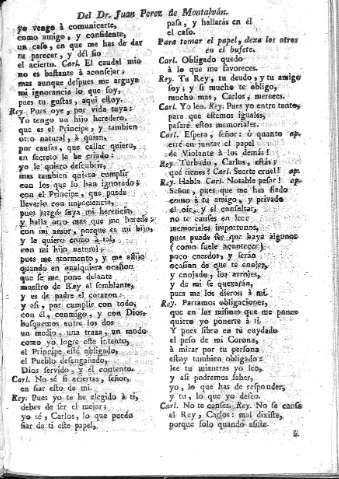 Del Dr. Juan Perez de Montalván.
yo vengo à comunicarte,
como amigo, y confidente,
un caso, en que me has de dar
tu parecer, y dèl fio
el acierto. Carl. El caudal mio
no es bastante à aconsejar;
mas aunque despues me arguya
mi ignorancia lo que soy,
pues tu gustas, aqui estoy.
Rey. Pues oye, por vida tuya:
Yo tengo un hijo heredero,
que es el Principe, y tambien
otro natural, à quien,
por causas, que callar quiero,
en secreto le he criado:
yo le quiero descubrir,
mas tambien quiero cumplir
con los que lo han ignorado:
con el Principe, que puede
llevarlo con impaciencia,
pues juzga suya mi herencia,
y halla otro mas que me herede:
con mi amor, porque es mi hijo,
y le quiero como à tal,
con mi hijo natural,
pues me atormento, y me aflijo
quando en qualquiera ocasion
que se me pone delante
muestro de Rey el semblante,
y es de padre el corazon:
y asi, por cumplir con todo,
con èl, conmigo, y con Dios,
busquemos entre los dos
un medio, una traza, un modo
como yo logre este intento,
el Principe estè obligado,
el Pueblo desengañado,
Dios servido, y èl contento.
Carl. No sè si aciertas, señor,
en fiar esto de mi.
Rey. Pues yo te he elegido à ti,
debes de ser el mejor:
yo sè, Carlos, lo que puedo
fiar de ti este papel,
pasa, y hallaràs en èl
el caso.
Para tomar el papel, dexa los otros
en el bufete.
Carl. Obligado quedo
à lo que me favoreces.
Rey. Tu Rey, tu deudo, y tu amigo
soy, y si mucho te obligo,
mucho mas, Carlos, mereces.
Carl. Yo leo. Rey. Pues yo entre tanto,
para que estemos iguales,
pasarè estos memoriales.
Carl. Espera, señor: ò quanto ap.
errè en juntar el papel
de Violante à los demàs!
Rey. Turbado, Carlos, estàs;
què tienes? Carl. Suerte cruel! ap.
Rey. Habla. Carl. Notable pesar! ap.
Señor, pues que me has fiado
como à tu amigo, y privado
el oìr, y el consultar,
no te canses en leer
memoriales importunos,
pues puede ser que haya algunos
( como suele acontecer )
poco cuerdos, y seràn
ocasion de que te enojes,
y enojado, los arrojes,
y de mi se quexaràn,
pues me los dieron à mi.
Rey. Partamos obligaciones,
que en los mismo que me pones
quiero yo ponerte à ti.
Y pues libra en tu cuydado
el peso de mi Corona,
à mirar por tu persona
estoy tambien obligado:
lee tu mientras yo leo,
y asi podremos saber,
yo, lo que has de responder,
y tu, lo que yo deseo.
Carl. No te canses. Rey. No se cansa
el Rey, Carlos: mal dixiste,
porque solo quando asiste